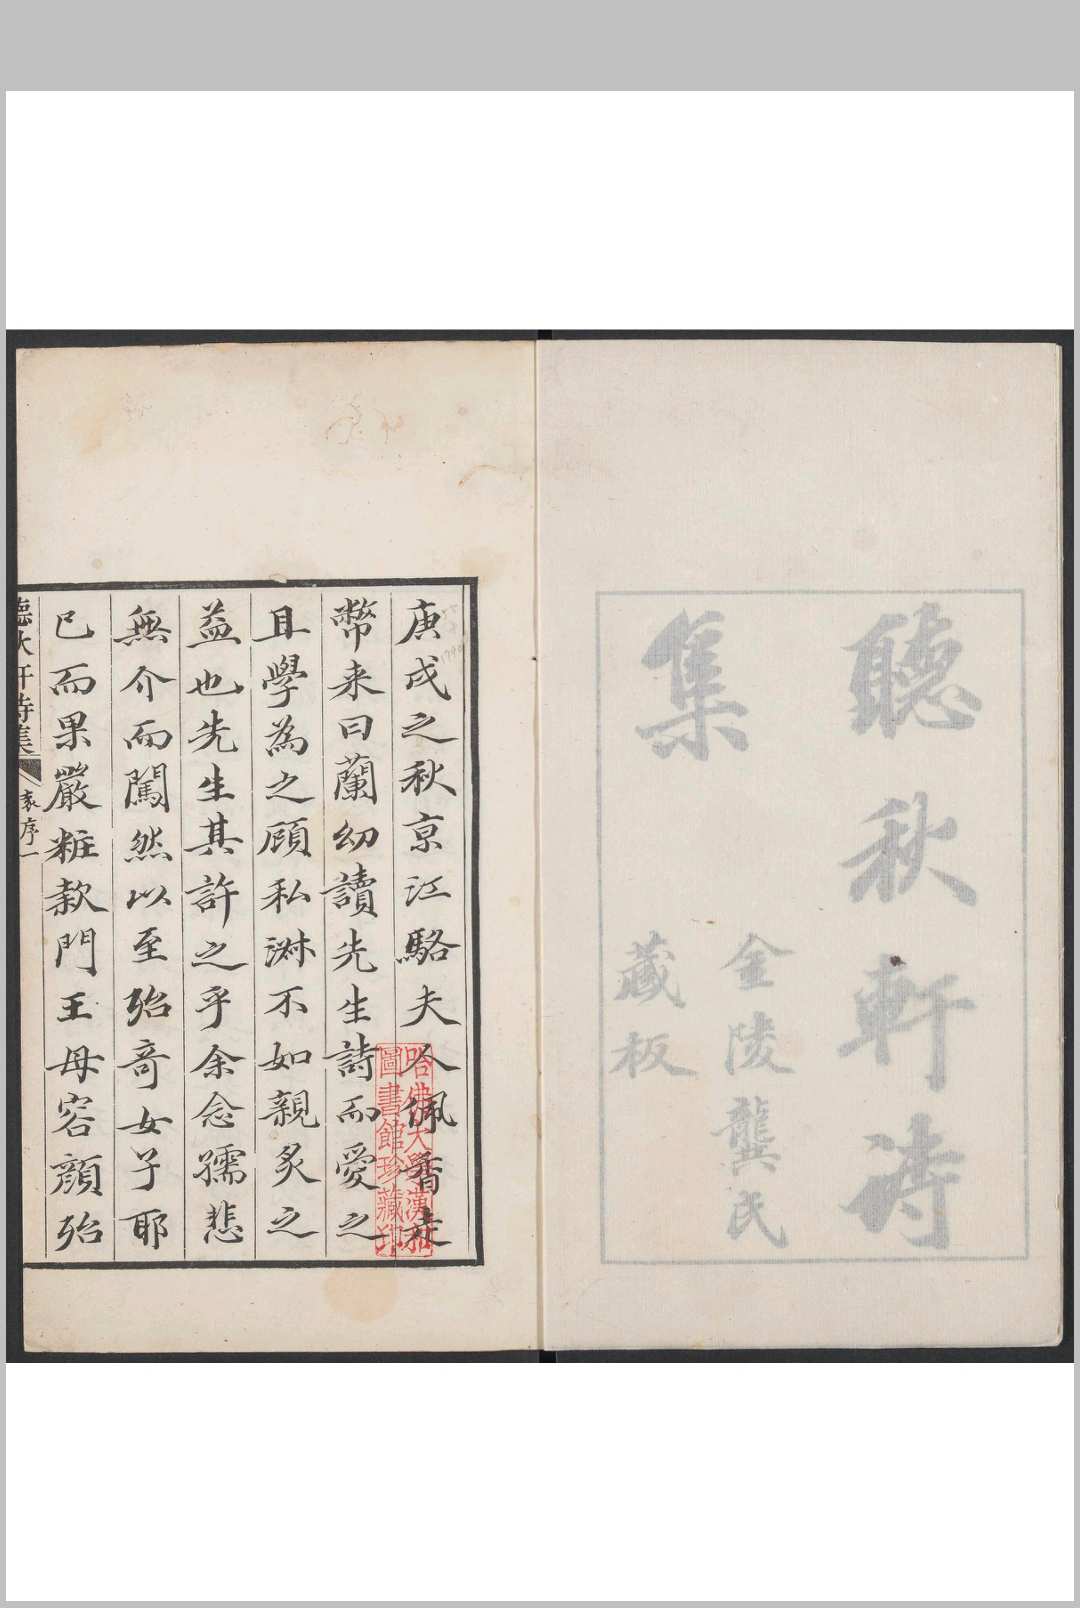 聽秋軒詩
集
金陵龔氏
藏板
庚戌之秋京江駱夫人佩香走
幣来曰蘭幼讀先生詩而愛之
且學為之顧私淑不如親炙之
益也先生其許之乎余念孺悲
無介而闖然以至殆奇女子耶
已而果嚴粧款門王母容顔殆
聽秋軒詩集
袁序一
哈佛大學漢和
圖書館珍藏印
1790